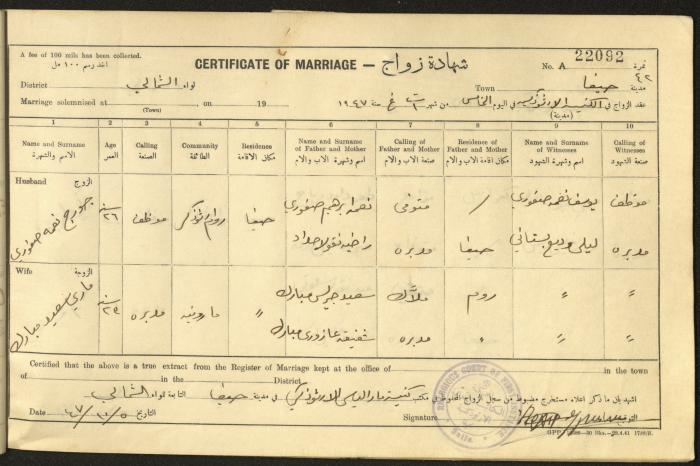 A fee of 100 mils has been collected.
اخذ رسم ١٠٠ مل
CERTIFICATE OF MARRIAGE — شهادة زواج
No. A 22092 نمرة
District لواء الشمالي
Town حيفا مدينة
Marriage solemnised at , on 19
(Town)
عقد الزواج في الكنيسة الارثوذكسية في اليوم الخامس من شهر سنة ١٩٤٧
(مدينة)
1 2 3 4 5 6 7 8 9 10
Name and Surname Age Calling Community Residence Name and Surname of Father and Mother Calling of Father and Mother Residence of Father and Mother Name and Surname of Witnesses Calling of Witnesses
الاسم والشهرة العمر الصنعة الطائفة مكان الاقامة اسم وشهرة الاب والام صنعة الاب والام مكان اقامة الاب والام اسم وشهرة الشهود صنعة الشهود
Husband الزوج
جورج نعمه صفوري ٢٦ سنه موظف روم ارثوذكس حيفا نعمه ابرهيم صفوري متوفي / يوسف نعمه صفوري موظف
راضيه نقولا حداد مدبره حيفا ليلى وديع بستاني مدبره
Wife الزوجة
ماري سعيد مبارك سنه مدبره مارونيه " سعيد جرجس مبارك ملاّك روم " "
شفيقه عازوري مبارك مدبره " "
Certified that the above is a true extract from the Register of Marriage kept at the office of in the town
of in the District
اشهد بان ما ذكر اعلاه مستخرج مضبوط من سجل الزواج المحفوظ في مكتب كنيسة مار الياس للارثوذكس في مدينة حيفا التابعة للواء الشمالي
Date التاريخ
Signature التوقيع